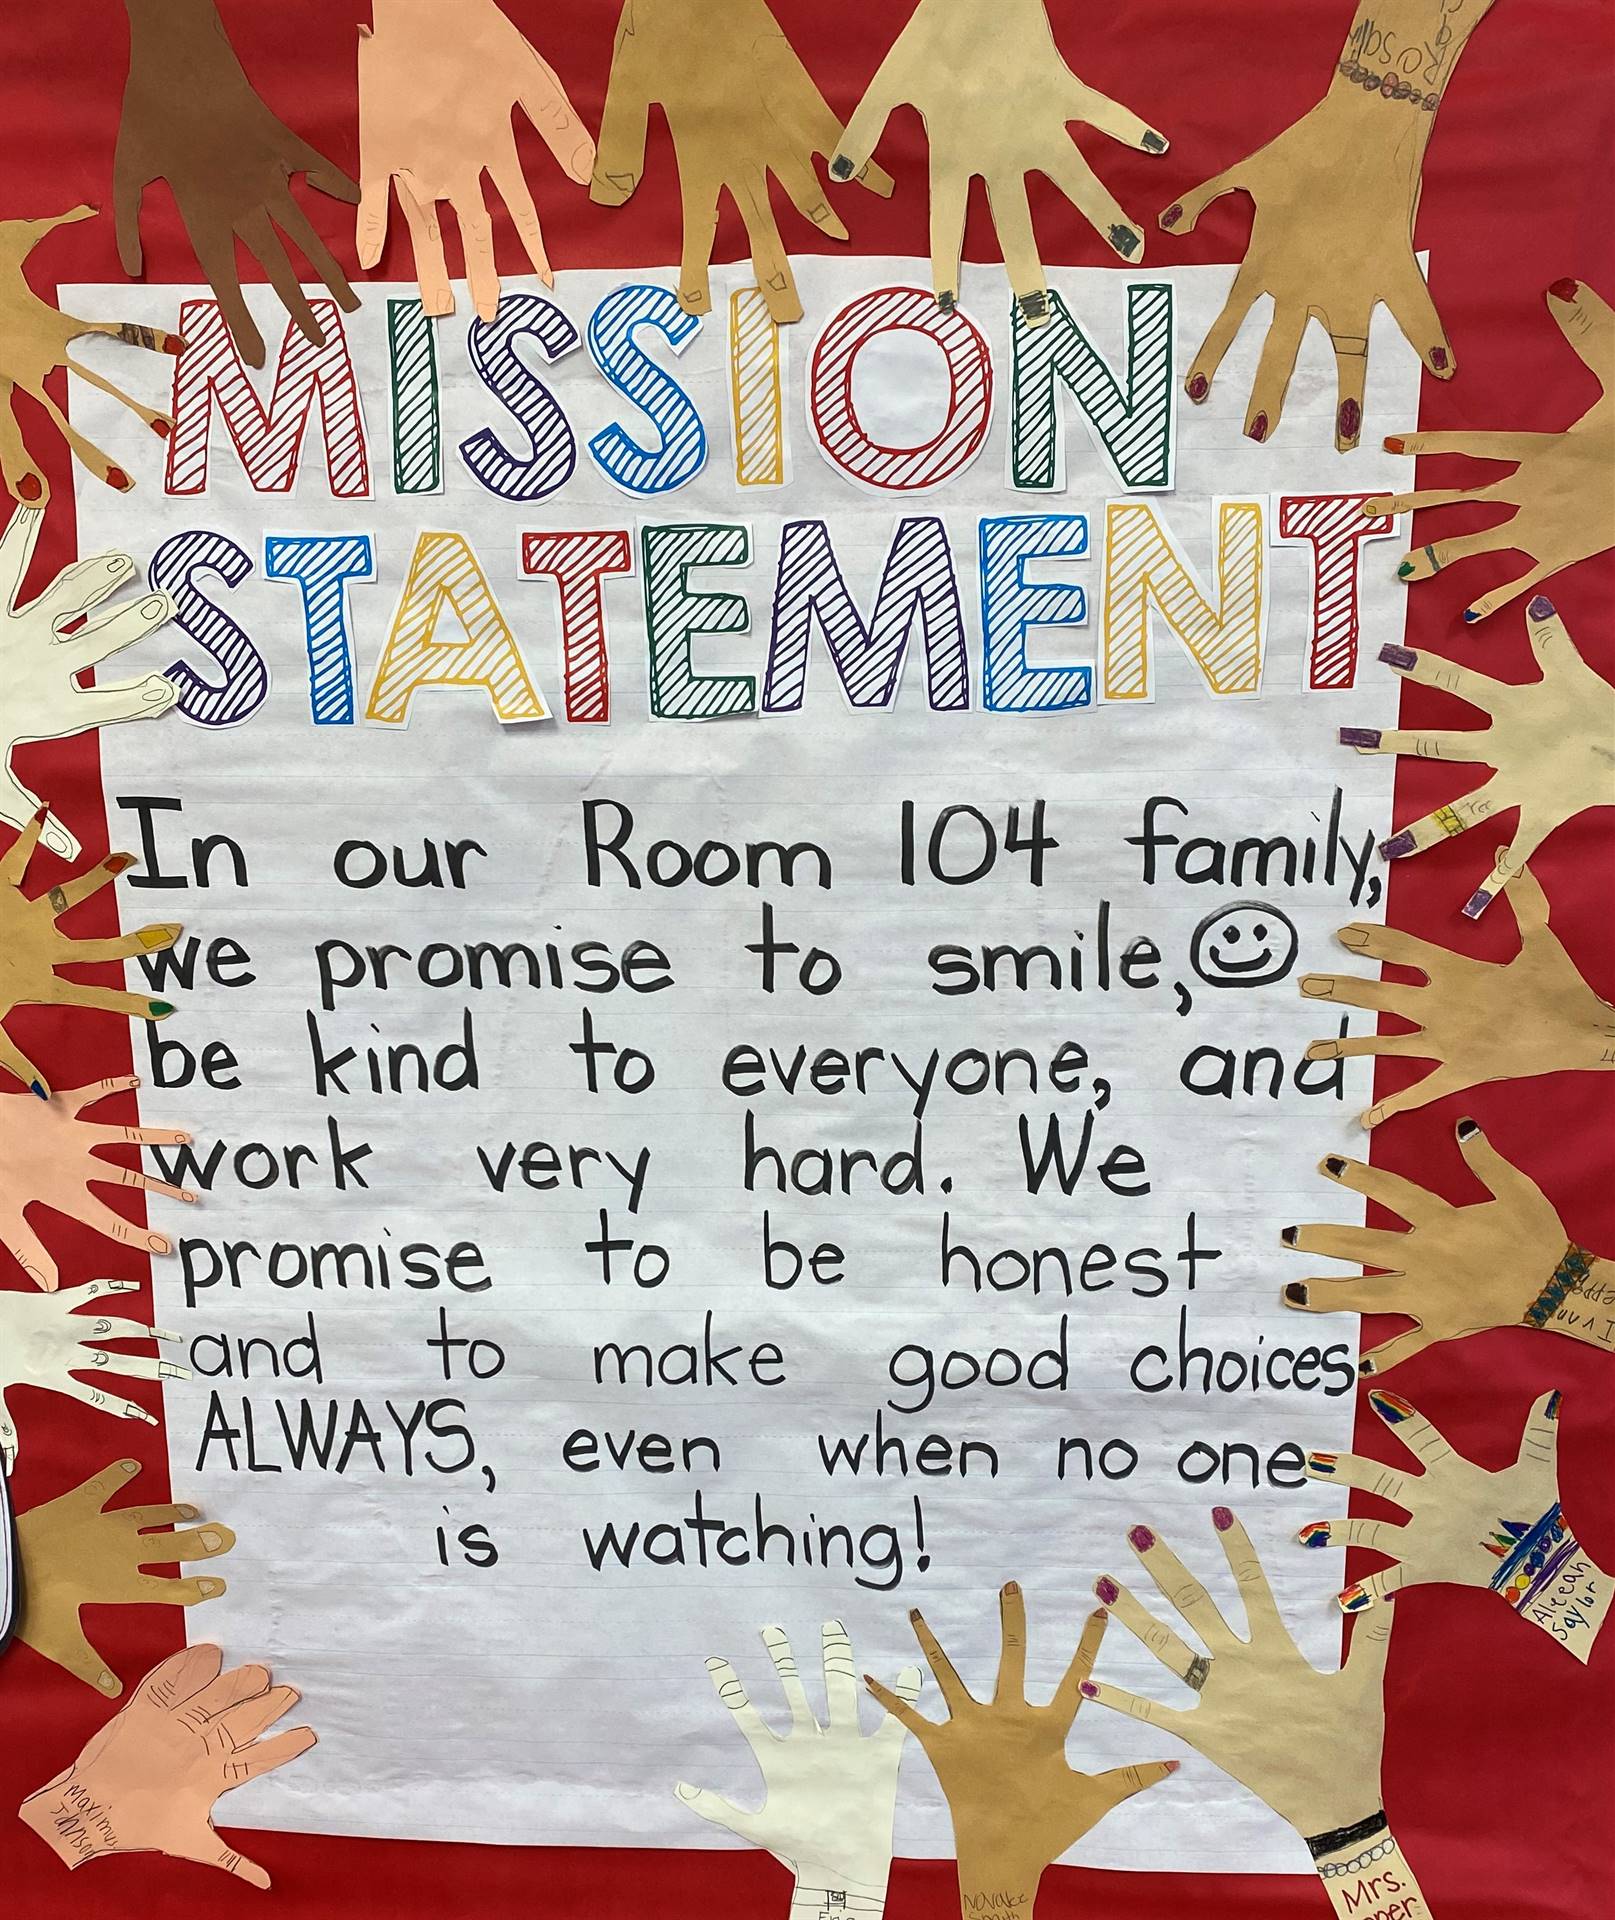 Rosalin
MISSION
STATEMENT
In our Room 104 family,
we promise to smile,
be kind to everyone, and
work very hard. We
promise to be honest
and to make good choices
ALWAYS, even when no one
is watching!
Aleeah
Saylor
Maximus
Johnson
Mrs.